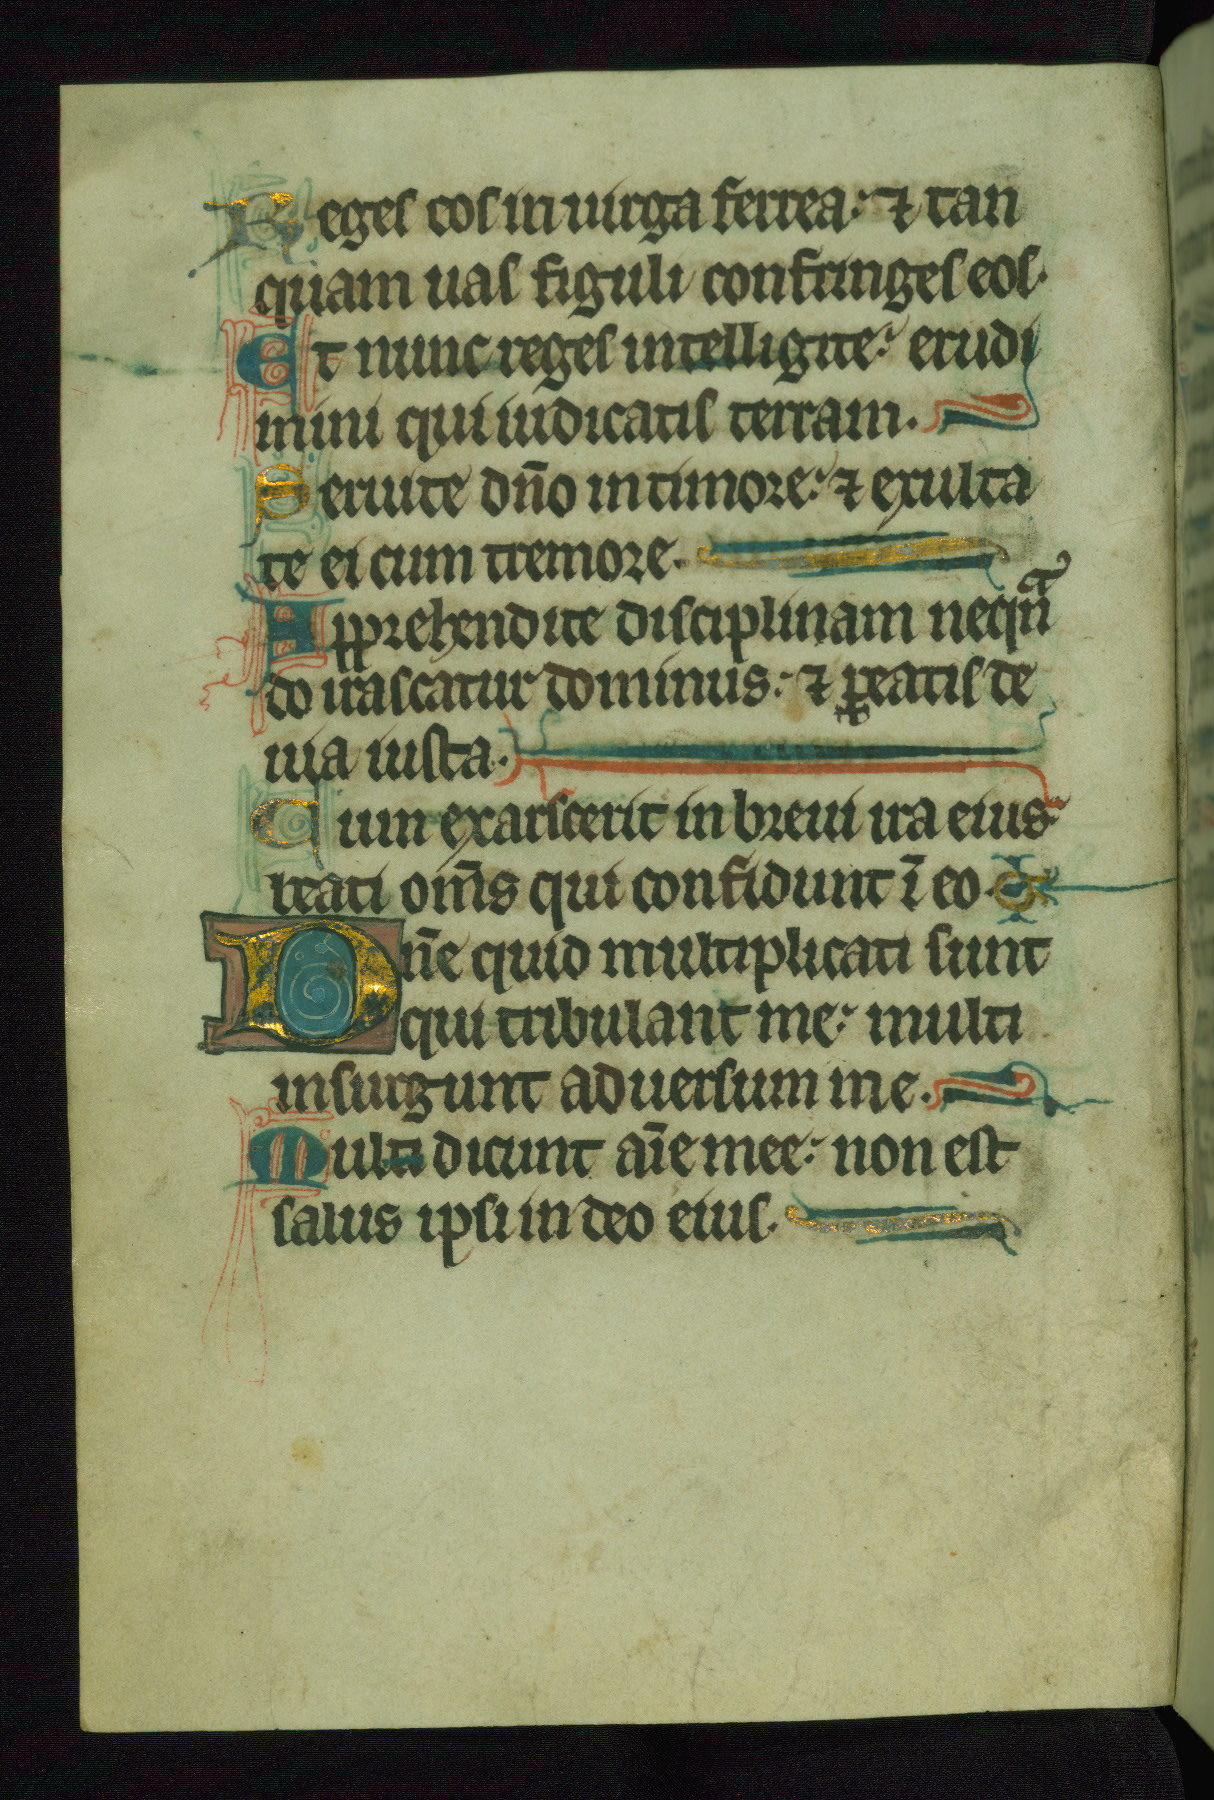 Reges eos in uirga ferrea: ⁊ tan
quam uas figuli confringes eos.
Et nunc reges intelligite: erudi
mini qui iudicatis terram.
Seruite dn̄o in timore: ⁊ exulta
te ei cum tremore.
Apprehendite disciplinam neqn̄
do irascatur dominus: ⁊ ꝑeatis de
uia iusta.
Cum exarserit in breui ira eius
beati om̄s qui confidunt ī eo.
Dn̄e quid multiplicati sunt
qui tribulant me: multi
insurgunt aduersum me.
Multi dicunt aīe mee: non est
salus ipsi in deo eius.